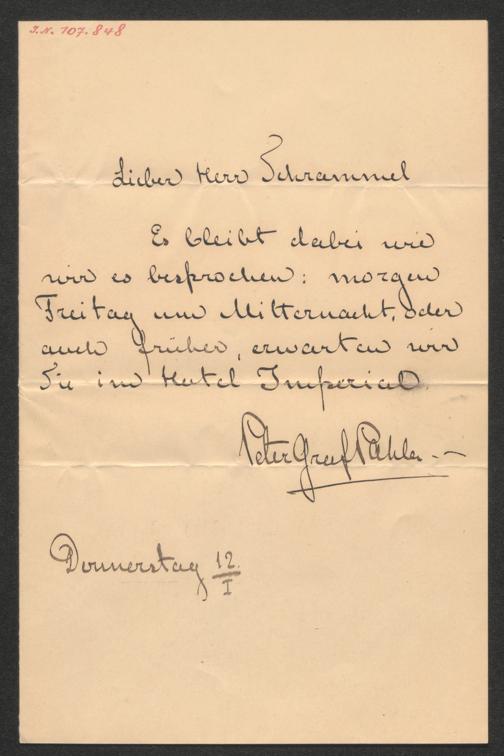 J.N. 107.848
Lieber Herr Schrammel
Es bleibt dabei wie
wir es besprochen: morgen
Freitag um Mitternacht, oder
auch früher, erwarten wir
Sie im Hotel Imperial.
Peter Graf Pahlen
Donnerstag 12/I